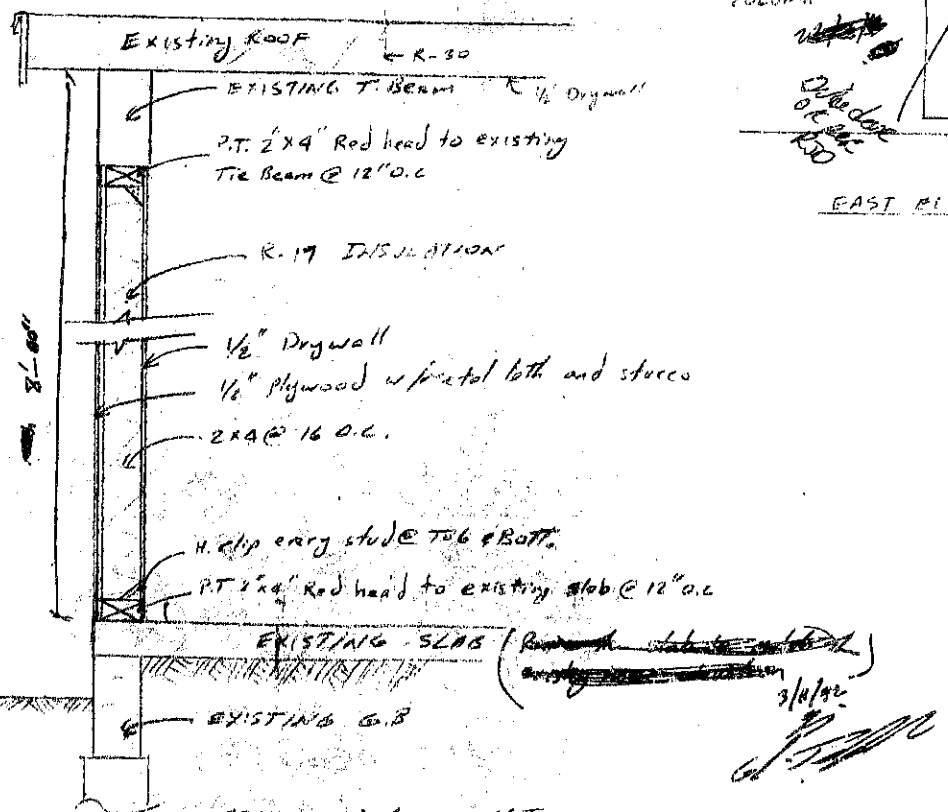 Existing ROOF
R-30
EXISTING T. Beam
1/2 Drywall
P.T. 2"x4" Red head to existing
Tie Beam @ 12" O.C
EAST
R-19 INSULATION
1/2" Drywall
1/2" Plywood w/metal lath and stucco
8'-00"
2x4 @ 16 O.C.
H. clip every stud @ Top & Bott.
P.T 2"x4" Red head to existing slab @ 12" O.C
EXISTING SLAB
3/11/92
EXISTING G.B